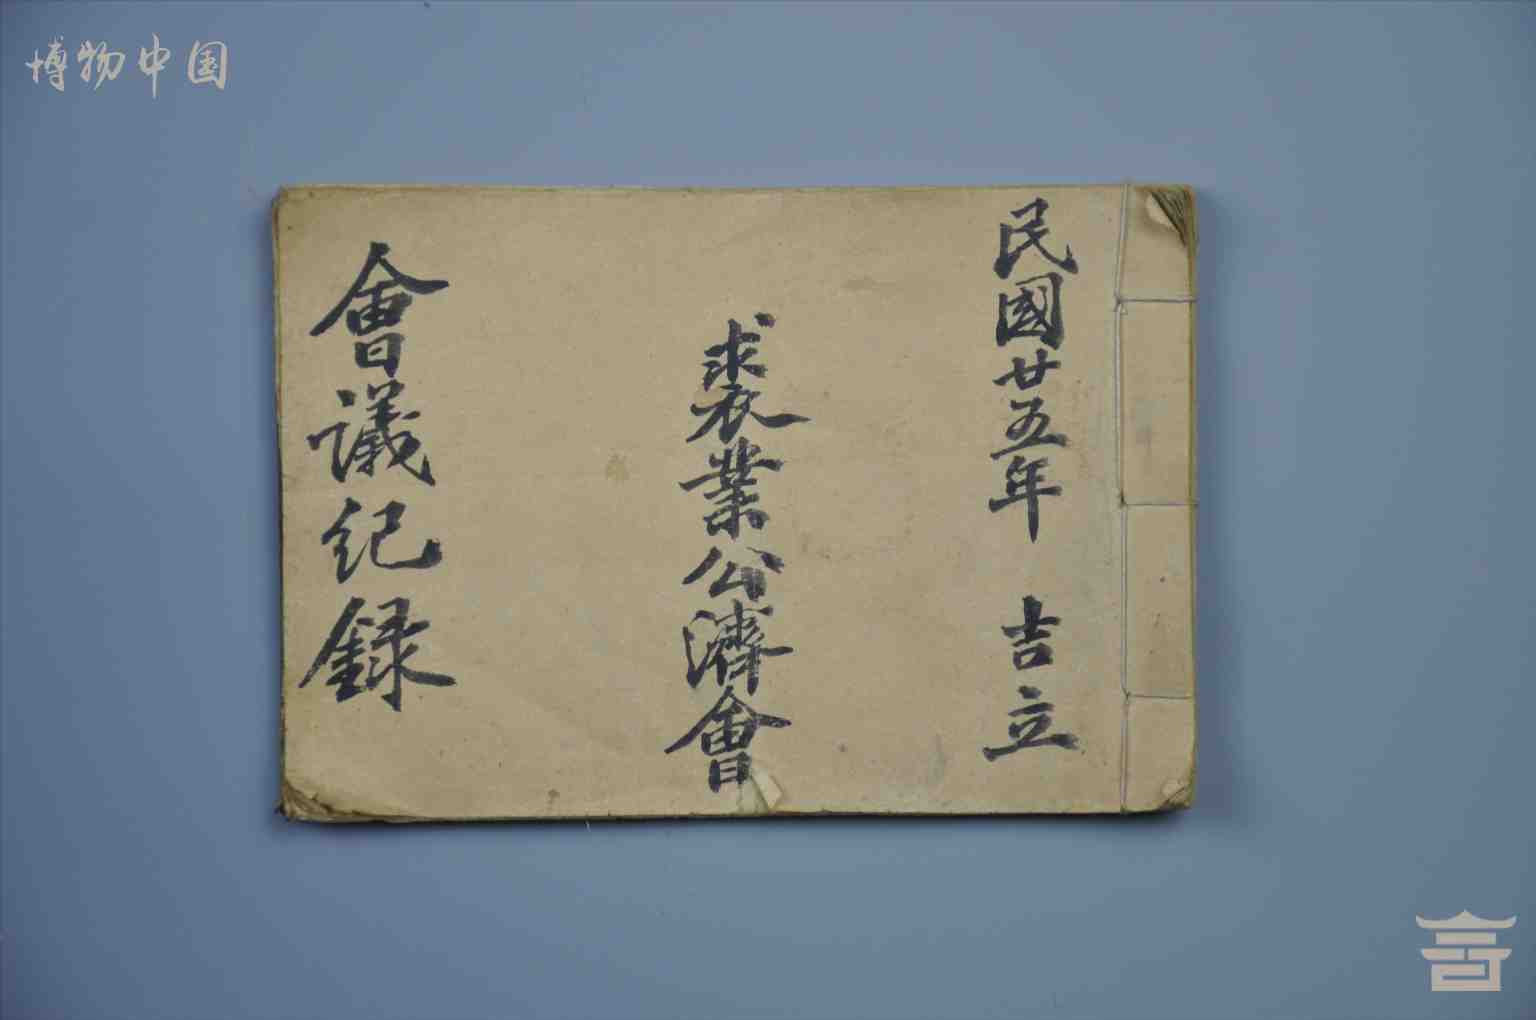 博物中国
民國廿五年 吉立
裘業公濟會
會議纪録